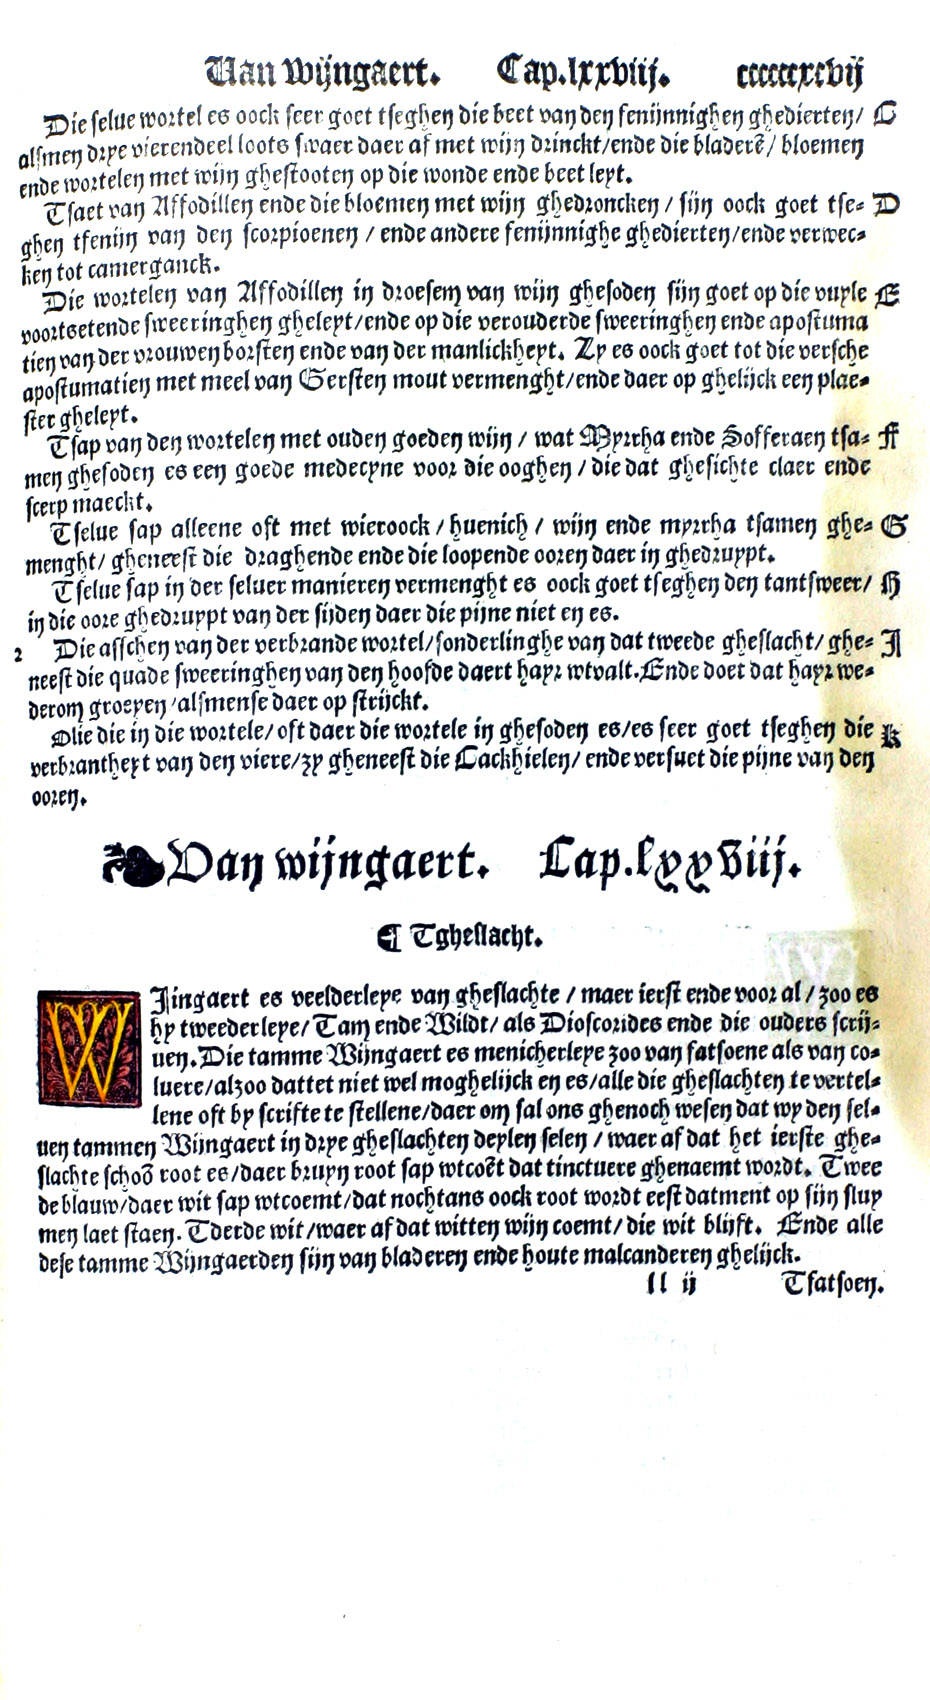 Van Wijngaert. Cap.lxxviij. ccccccxcvij
Die selue wortel es oock seer goet tseghen die beet van den fenijnnighen ghedierten/ C
alsmen drye vierendeel loots swaer daer af met wijn drinckt/ende die bladerē/ bloemen
ende wortelen met wijn ghestooten op die wonde ende beet leyt.
Tsaet van Affodillen ende die bloemen met wijn ghedroncken / sijn oock goet tse- D
ghen tfenijn van den scorpioenen / ende andere fenijnnighe ghedierten/ende verwec-
ken tot camerganck.
Die wortelen van Affodillen in droesem van wijn ghesoden sijn goet op die vuyle E
voortsetende sweeringhen gheleyt/ende op die verouderde sweeringhen ende apostuma
tien van der vrouwen borsten ende van der manlickheyt. Zy es oock goet tot die versche
apostumatien met meel van Gersten mout vermenght/ende daer op ghelijck een plae-
ster gheleyt.
Tsap van den wortelen met ouden goeden wijn / wat Myrrha ende Sofferaen tsa- F
men ghesoden es een goede medecyne voor die ooghen / die dat ghesichte claer ende
scerp maeckt.
Tselue sap alleene oft met wieroock / huenich / wijn ende myrrha tsamen ghe- G
menght/ gheneest die draghende ende die loopende ooren daer in ghedruypt.
Tselue sap in der seluer manieren vermenght es oock goet tseghen den tantsweer/ H
in die oore ghedruypt van der sijden daer die pijne niet en es.
2 Die asschen van der verbrande wortel/sonderlinghe van dat tweede gheslacht/ ghe- I
neest die quade sweeringhen van den hoofde daert hayr wtvalt.Ende doet dat hayr we-
derom groeyen/alsmense daer op strijckt.
Olie die in die wortele/ oft daer die wortele in ghesoden es/es seer goet tseghen die K
verbrantheyt van den viere/zy gheneest die Cackhielen/ ende versuet die pijne van den
ooren.
Van wijngaert. Cap.lxxviij.
¶ Tgheslacht.
WIjngaert es veelderleye van gheslachte / maer ierst ende voor al / zoo es
hy tweederleye/ Tam ende Wildt/ als Dioscorides ende die ouders scrij-
uen. Die tamme Wijngaert es menicherleye zoo van fatsoene als van co-
luere/alzoo dattet niet wel moghelijck en es/alle die gheslachten te vertel-
lene oft by scrifte te stellene/daer om sal ons ghenoch wesen dat wy den sel-
uen tammen Wijngaert in drye gheslachten deylen selen / waer af dat het ierste ghe-
slachte schoō root es/daer bruyn root sap wtcoēt dat tinctuere ghenaemt wordt. Twee
de blauw/daer wit sap wtcoemt/dat nochtans oock root wordt eest datment op sijn sluy
men laet staen. Tderde wit/waer af dat witten wijn coemt/ die wit blijft. Ende alle
dese tamme Wijngaerden sijn van bladeren ende houte malcanderen ghelijck.
ll ij Tfatsoen.